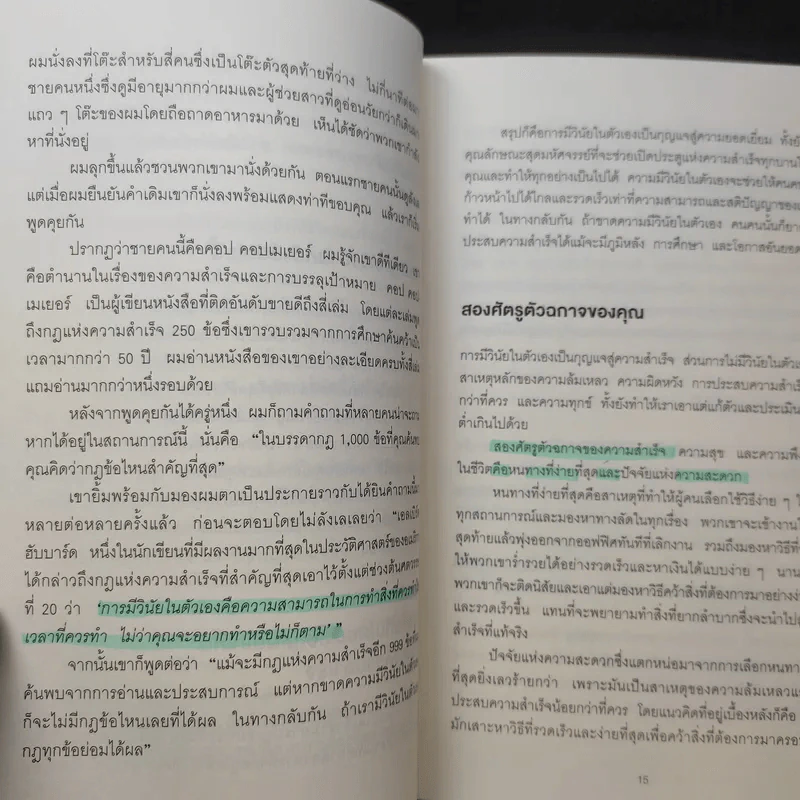 ผมนั่งลงที่โต๊ะสำหรับสี่คนซึ่งเป็นโต๊ะตัวสุดท้ายที่ว่าง ไม่กี่นาทีต่อมา
ชายคนหนึ่งซึ่งดูมีอายุมากกว่าผมและผู้ช่วยสาวที่ดูอ่อนวัยกว่าก็เดิน
แถว ๆ โต๊ะของผมโดยถือถาดอาหารมาด้วย เห็นได้ชัดว่าพวกเขากำลัง
หาที่นั่งอยู่
ผมลุกขึ้นแล้วชวนพวกเขามานั่งด้วยกัน ตอนแรกชายคนนั้น
แต่เมื่อผมยืนยันคำเดิมเขาก็นั่งลงพร้อมแสดงท่าทีขอบคุณ แล้วเราก็
พูดคุยกัน
ปรากฏว่าชายคนนี้คือคอป คอปเมเยอร์ ผมรู้จักเขาดีทีเดียว เขา
คือตำนานในเรื่องของความสำเร็จและการบรรลุเป้าหมาย คอป คอป
เมเยอร์ เป็นผู้เขียนหนังสือที่ติดอันดับขายดีถึงสี่เล่ม โดยแต่ละเล่ม
ถึงกฎแห่งความสำเร็จ 250 ข้อซึ่งเขารวบรวมจากการศึกษาค้นคว้าเป็น
เวลามากกว่า 50 ปี ผมอ่านหนังสือของเขาอย่างละเอียดครบทั้งสี่เล่ม
แถมอ่านมากกว่าหนึ่งรอบด้วย
หลังจากพูดคุยกันได้ครู่หนึ่ง ผมก็ถามคำถามที่หลายคนน่าจะถาม
หากได้อยู่ในสถานการณ์นี้ นั่นคือ “ในบรรดากฎ 1,000 ข้อที่คุณค้นพบ
คุณคิดว่ากฎข้อไหนสำคัญที่สุด”
เขายิ้มพร้อมกับมองผมตาเป็นประกายราวกับได้ยินคำถามนี้มา
หลายต่อหลายครั้งแล้ว ก่อนจะตอบโดยไม่ลังเลเลยว่า “เอลเบิร์ต
ฮับบาร์ด หนึ่งในนักเขียนที่มีผลงานมากที่สุดในประวัติศาสตร์ของอเมริกา
ได้กล่าวถึงกฎแห่งความสำเร็จที่สำคัญที่สุดเอาไว้ตั้งแต่ช่วงต้นศตวรรษ
ที่ 20 ว่า ‘การมีวินัยในตัวเองคือความสามารถในการทำสิ่งที่ควรทำใน
เวลาที่ควรทำ ไม่ว่าคุณจะอยากทำหรือไม่ก็ตาม’ ”
จากนั้นเขาก็พูดต่อว่า “แม้จะมีกฎแห่งความสำเร็จอีก 999 ข้อที่ผม
ค้นพบจากการอ่านและประสบการณ์ แต่หากขาดความมีวินัยในตัวเอง
ก็จะไม่มีกฎข้อไหนเลยที่ได้ผล ในทางกลับกัน ถ้าเรามีวินัยในตัวเอง
กฎทุกข้อย่อมได้ผล”
สรุปก็คือการมีวินัยในตัวเองเป็นกุญแจสู่ความยอดเยี่ยม ทั้งยัง
คุณลักษณะสุดมหัศจรรย์ที่จะช่วยเปิดประตูแห่งความสำเร็จทุกบาน
คุณและทำให้ทุกอย่างเป็นไปได้ ความมีวินัยในตัวเองจะช่วยให้คน
ก้าวหน้าไปได้ไกลและรวดเร็วเท่าที่ความสามารถและสติปัญญาของ
ทำได้ ในทางกลับกัน ถ้าขาดความมีวินัยในตัวเอง คนคนนั้นก็ยาก
ประสบความสำเร็จได้แม้จะมีภูมิหลัง การศึกษา และโอกาสอันยอด
สองศัตรูตัวฉกาจของคุณ
การมีวินัยในตัวเองเป็นกุญแจสู่ความสำเร็จ ส่วนการไม่มีวินัยในตัวเอง
สาเหตุหลักของความล้มเหลว ความผิดหวัง การประสบความสำเร็จ
กว่าที่ควร และความทุกข์ ทั้งยังทำให้เราเอาแต่แก้ตัวและประเมิน
ต่ำเกินไปด้วย
สองศัตรูตัวฉกาจของความสำเร็จ ความสุข และความพึง
ในชีวิตคือหนทางที่ง่ายที่สุดและปัจจัยแห่งความสะดวก
หนทางที่ง่ายที่สุดคือสาเหตุที่ทำให้ผู้คนเลือกใช้วิธีง่าย ๆ ใน
ทุกสถานการณ์และมองหาทางลัดในทุกเรื่อง พวกเขาจะเข้างาน
สุดท้ายแล้วพุ่งออกจากออฟฟิศทันทีที่เลิกงาน รวมถึงมองหาวิธีที่
ให้พวกเขาร่ำรวยได้อย่างรวดเร็วและหาเงินได้แบบง่าย ๆ นาน
พวกเขาก็จะติดนิสัยและเอาแต่มองหาวิธีคว้าสิ่งที่ต้องการมาอย่างง่าย
และรวดเร็วขึ้น แทนที่จะพยายามทำสิ่งที่ยากลำบากซึ่งจะนำไปสู่
สำเร็จที่แท้จริง
ปัจจัยแห่งความสะดวกซึ่งแตกหน่อมาจากการเลือกหนทาง
ที่สุดยิ่งเลวร้ายกว่า เพราะมันเป็นสาเหตุของความล้มเหลวและ
ประสบความสำเร็จน้อยกว่าที่ควร โดยแนวคิดที่อยู่เบื้องหลังก็คือ
มักเสาะหาวิธีที่รวดเร็วและง่ายที่สุดเพื่อคว้าสิ่งที่ต้องการมาครอง
15